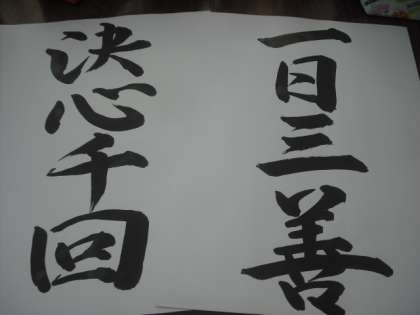 一日三善
決心千回